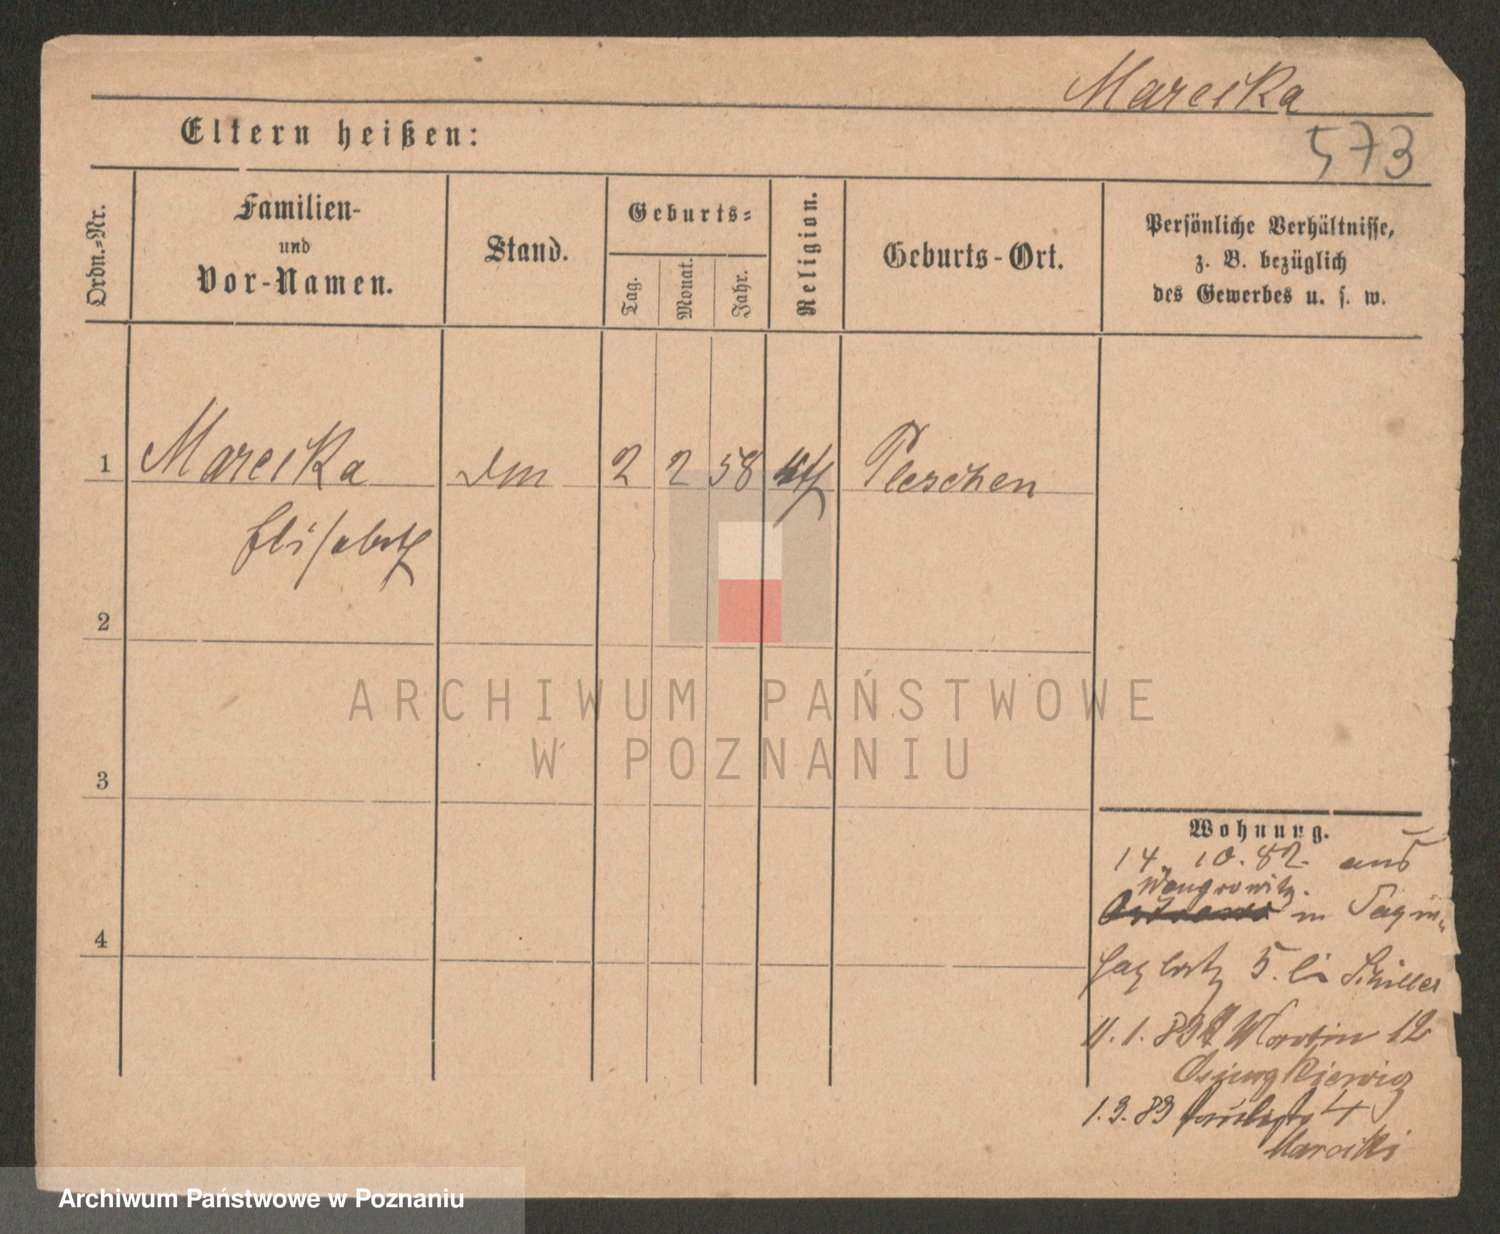 Mareska
573
Eltern heißen:
Ordn.=Nr.
Familien-
und
Vor-Namen.
Stand.
Geburts=
Tag.
Monat.
Jahr.
Religion.
Geburts-Ort.
Persönliche Verhältnisse,
z. B. bezüglich
des Gewerbes u. s. w.
1
Mareska
2 2 58
Pleschen
Elisabeth
2
3
4
ARCHIWUM PAŃSTWOWE
W POZNANIU
Wohnung.
14. 10. 82. aus
Wongrowitz.
in
5. bei Schiller
11. 1. 83 St Martin 12
1. 3. 83 4
Archiwum Państwowe w Poznaniu